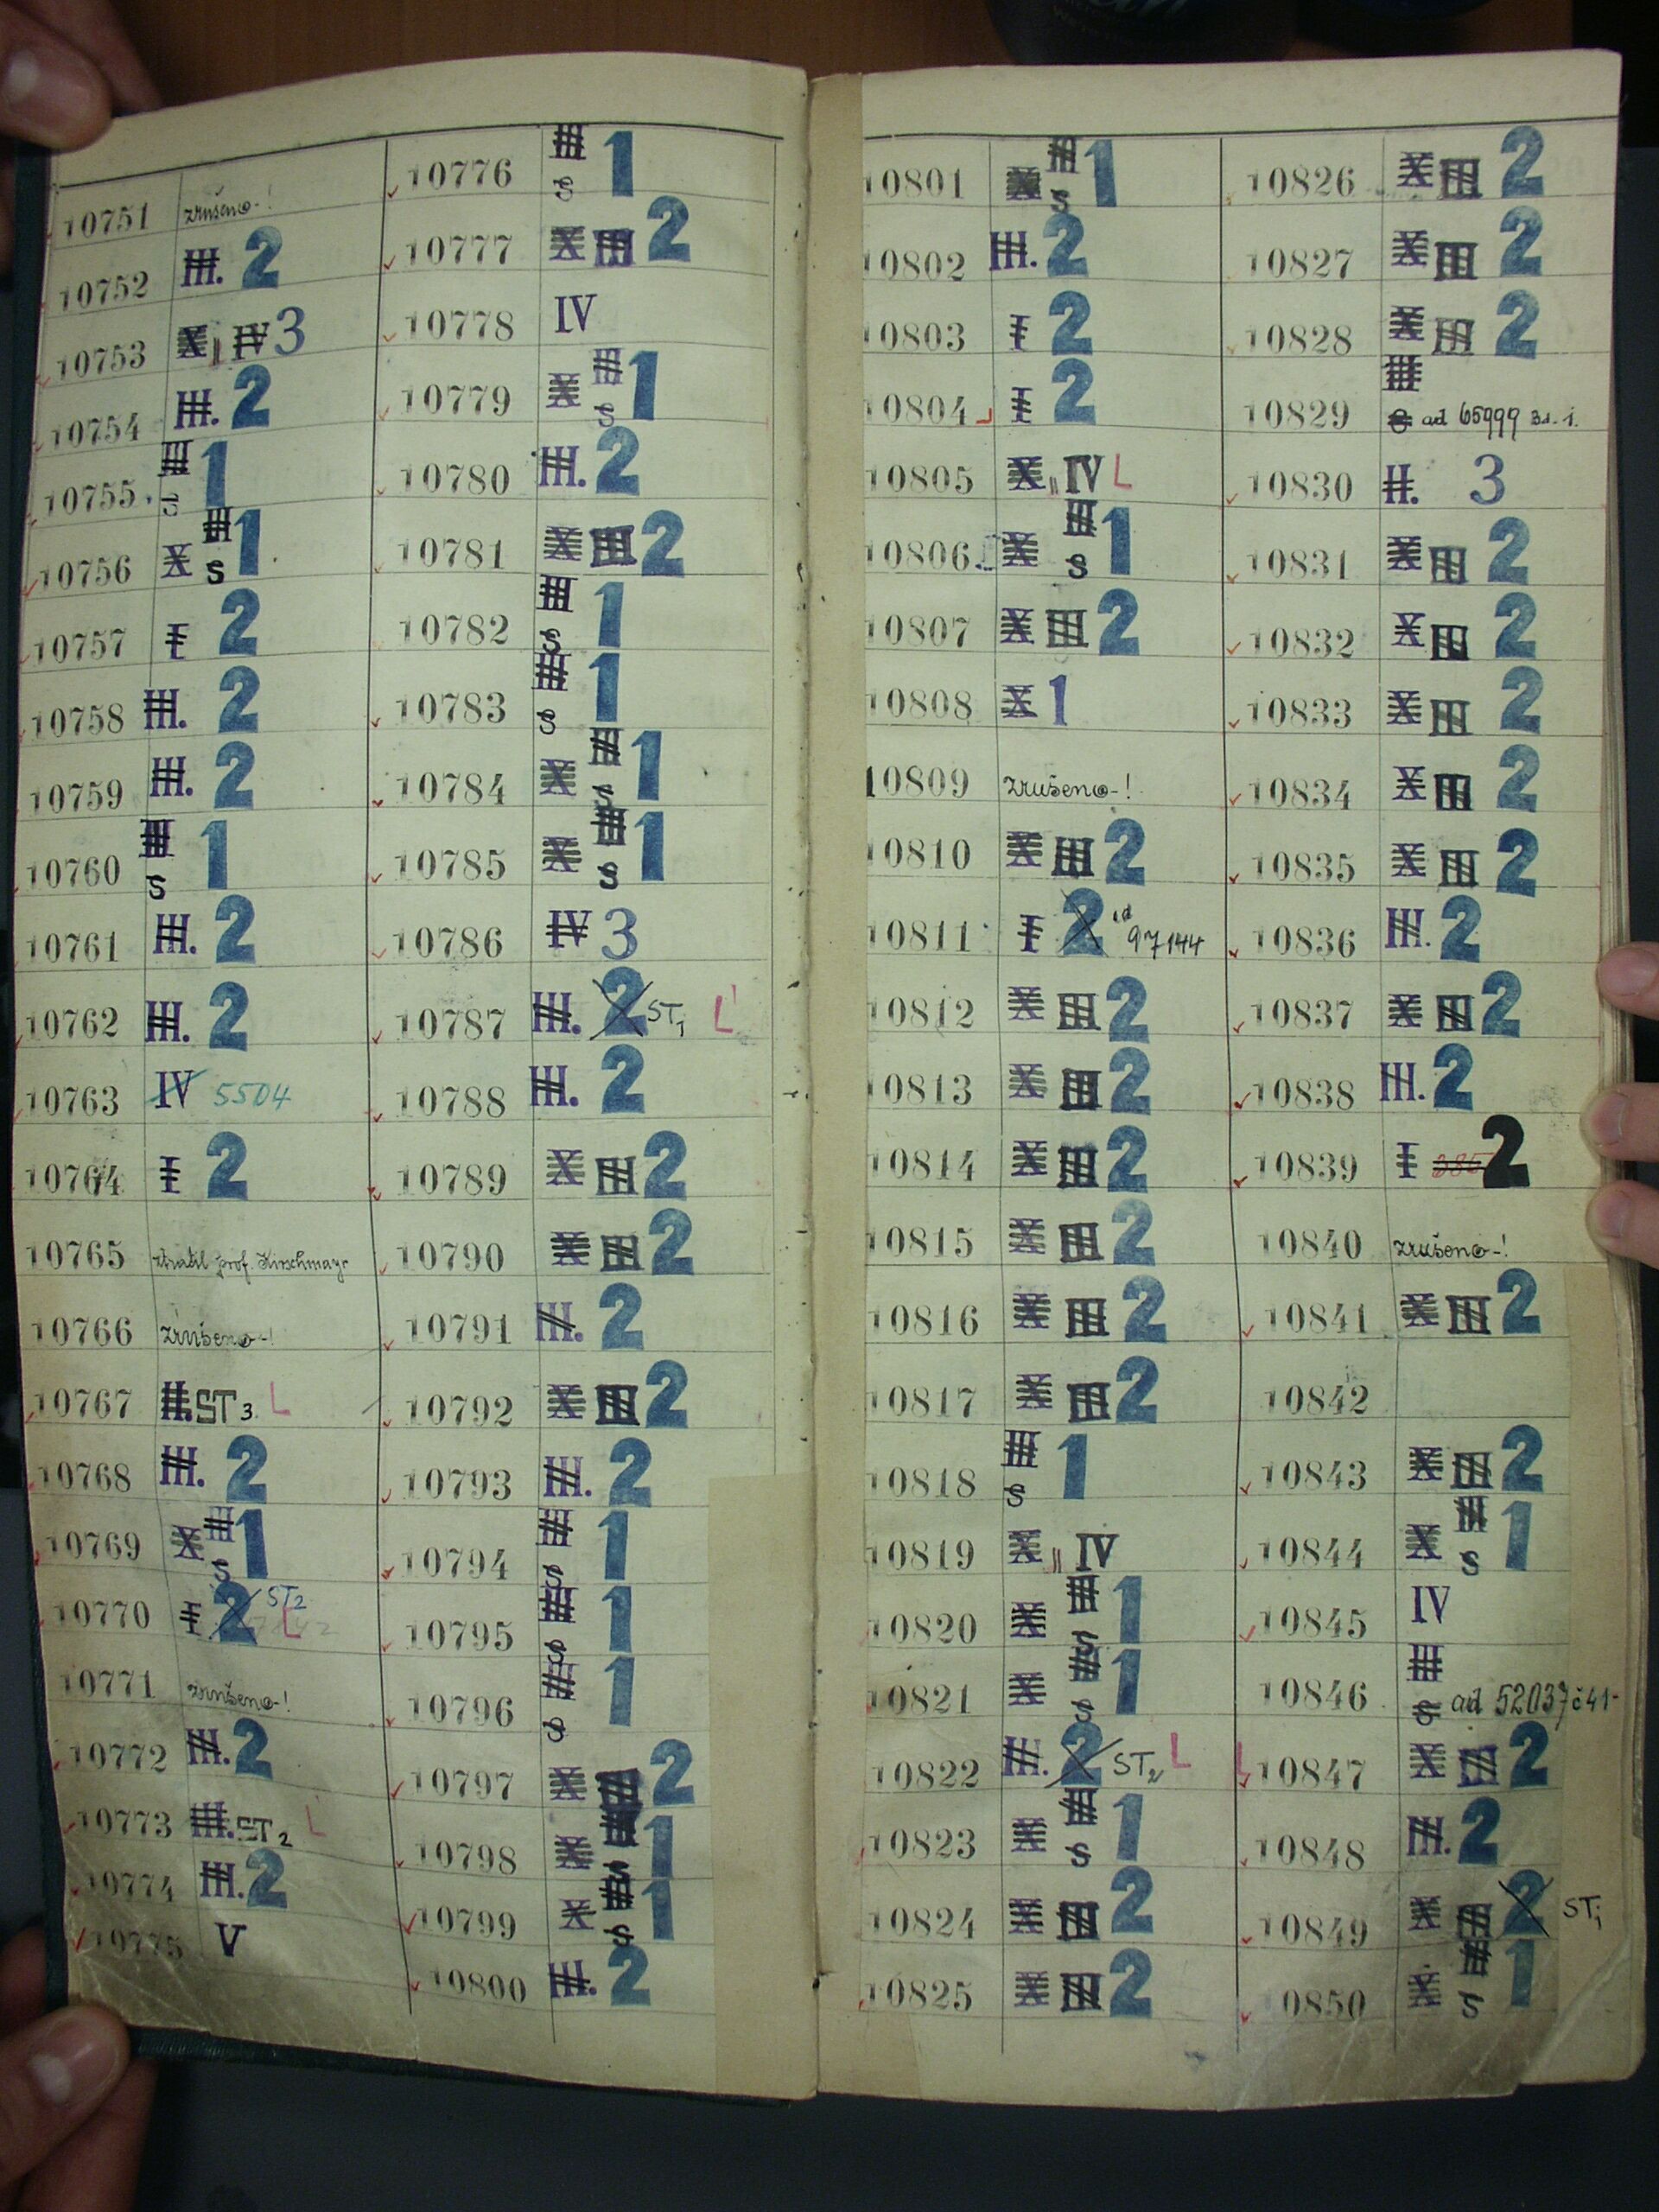 10751 zrušeno-!
10752 III. 2
10753 X II IV 3
10754 III. 2
10755 III S 1
10756 X III S 1
10757 I 2
10758 III. 2
10759 III. 2
10760 III S 1
10761 III. 2
10762 III. 2
10763 IV 5504
10764 I 2
10765 ztratil prof. Kirschmayr
10766 zrušeno-!
10767 II. ST 3 L
10768 III. 2
10769 X III S 1
10770 I 2 ST2 L
10771 zrušeno-!
10772 III. 2
10773 III. ST 2 L
10774 III. 2
10775 V
10776 III S 1
10777 X III 2
10778 IV
10779 X III S 1
10780 III. 2
10781 X III 2
10782 III S 1
10783 III S 1
10784 X III S 1
10785 X III S 1
10786 IV 3
10787 III. 2 ST1 L
10788 III. 2
10789 X III 2
10790 X III 2
10791 III. 2
10792 X III 2
10793 III. 2
10794 III S 1
10795 III S 1
10796 III S 1
10797 X III 2
10798 X III S 1
10799 X III S 1
10800 III. 2
10801 X III S 1
10802 III. 2
10803 I 2
10804 I 2
10805 X II IV L
10806 X III S 1
10807 X III 2
10808 X 1
10809 zrušeno-!
10810 X III 2
10811 I 2 id 97144
10812 X III 2
10813 X III 2
10814 X III 2
10815 X III 2
10816 X III 2
10817 X III 2
10818 III S 1
10819 X II IV
10820 X III S 1
10821 X III S 1
10822 III. 2 ST2 L
10823 X III S 1
10824 X III 2
10825 X III 2
10826 X III 2
10827 X III 2
10828 X III 2
10829 III S ad 65999 3s. i.
10830 II. 3
10831 X III 2
10832 X III 2
10833 X III 2
10834 X III 2
10835 X III 2
10836 III. 2
10837 X III 2
10838 III. 2
10839 I 2
10840 zrušeno-!
10841 X III 2
10842
10843 X III 2
10844 X III S 1
10845 IV
10846 III S ad 52037 č41-
L 10847 X III 2
10848 III. 2
10849 X III 2 ST1
0850 X III S 1